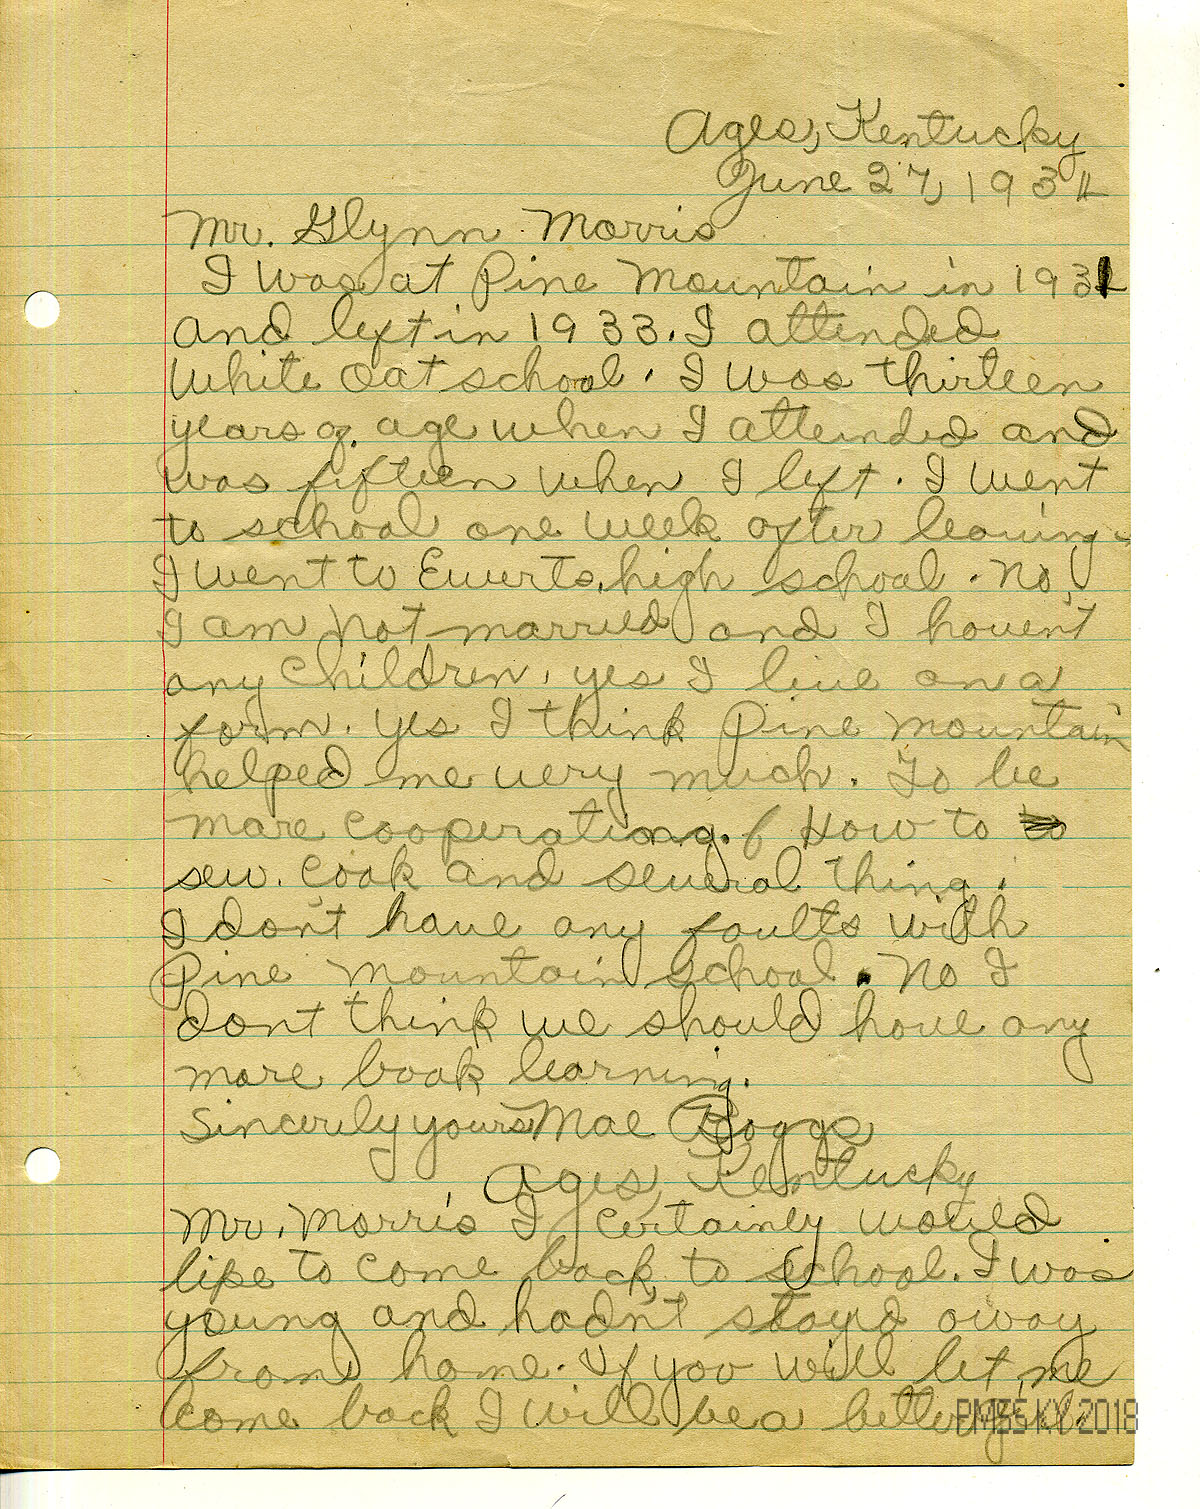 Ages, Kentucky
June 27, 1934
Mr. Glynn Morris
I was at Pine Mountain in 1931
and left in 1933. I attended
White Oat school. I was thirteen
years of age when I atteinded and
was fifteen when I left. I went
to school one week after leaving.
I went to Ewerts high school. No,
I am not married and I haven't
any children. yes I live on a
farm. yes I think Pine mountain
helped me very much. To be
more cooperating. How to
sew. Cook and several thing.
I don't have any faults with
Pine Mountain School. No I
dont think we should have any
more book learning.
Sincerily yours Mae Boggs
Ages, Kentucky
Mr. Morris I certainly would
like to come back to school. I was
young and hadn't stayed away
from home. If you will let me
come back I will be a better girl.
PMSS KY 2018